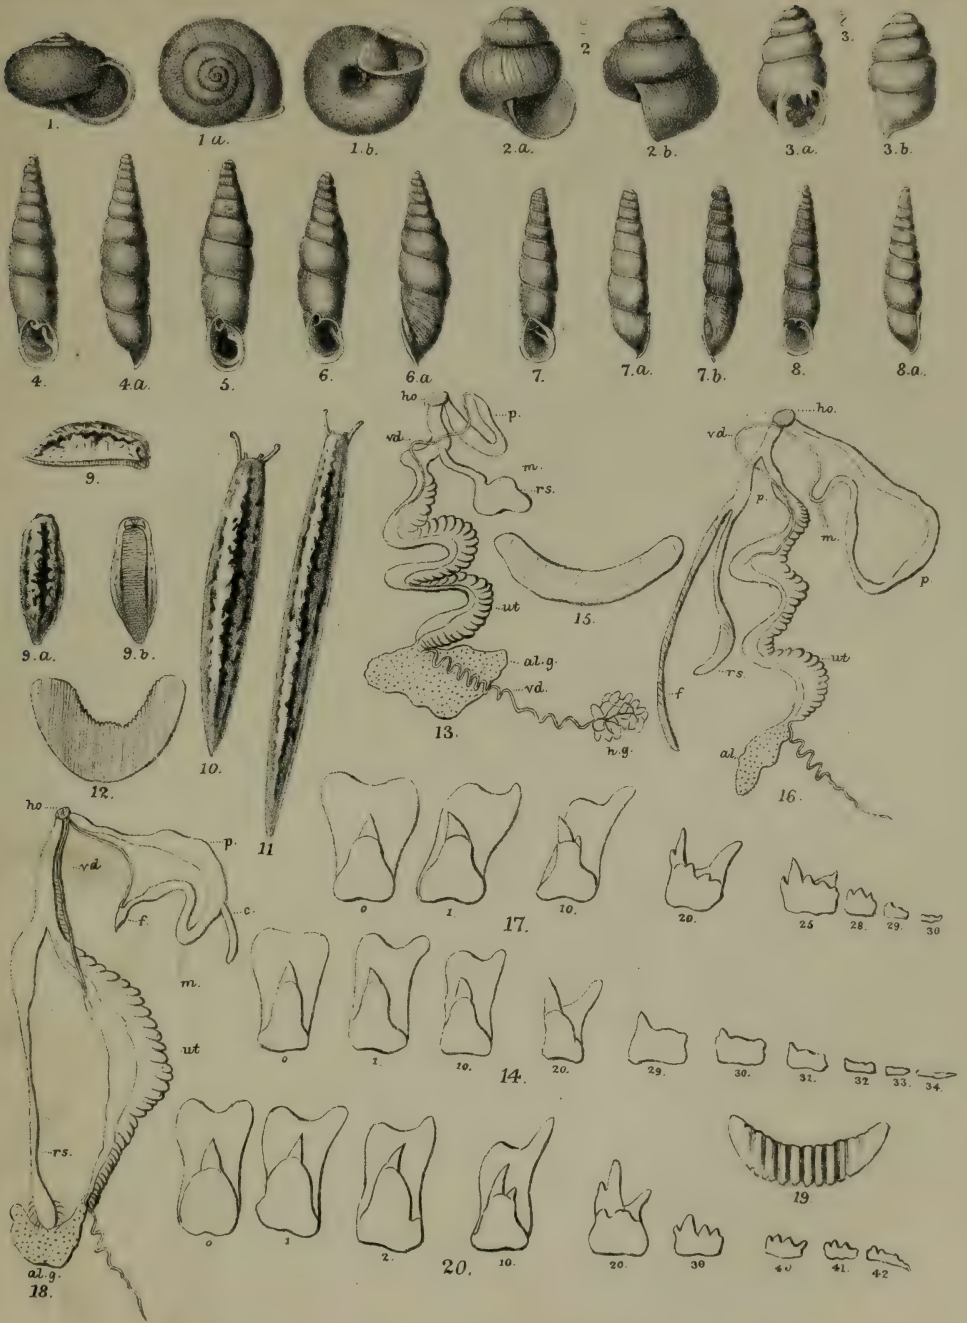 1.
1 a.
1.b.
2
2.a.
2.b.
3.
3.a.
3.b.
4.
4.a.
5.
6.
6.a
7.
7.a.
7.b.
8.
8.a.
9.
9.a.
9.b.
10.
11
12.
ho
p.
vd
m.
rs.
ut
al.g.
vd.
h.g.
13.
15.
vd
ho.
p.
m.
p
ut
rs.
f
al.
16.
ho
p.
vd
f.
c.
m.
ut
rs.
al.g.
18.
0
1.
10.
20.
25
28.
29.
30
17.
0
1.
10.
20.
29.
30.
31.
32
33.
34.
14.
19
0
1
2.
10.
20.
30
40
41.
42
20.